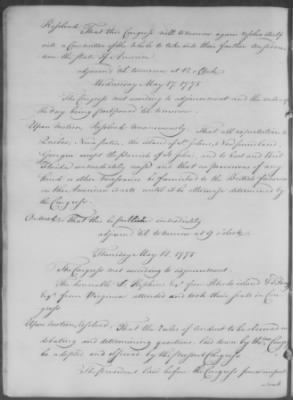 Resolved That this Congress will tomorrow again resolve itself
into a Committee of the whole to take into their further consideration
the state of America
adjourned till tomorrow at 9 oClock
Wednesday May 17. 1775
The Congress met according to adjournment and the order of
the day being postponed till tomorrow
Upon motion Resolved Unanimously That all exportations to
Quebec, Nova Scotia, the island of St John's, Newfoundland,
Georgia except the Parish of St John's, and to East and West
Florida immediately cease and that no provisions of any
kind or other necessaries be furnished to the British fisheries
on the American coasts until it be otherwise determined by
the Congress.
Ordered That this be published immediately
adjourned till tomorrow at 9 oclock
Thursday May 18. 1775
The Congress met according to adjournment
The honorable S. Hopkins Esqr from Rhode island &
Esqr from Virginia attended and took their seats in Con-
gress
Upon motion, resolved, That the rules of conduct to be observed in
debating and determining questions laid down by the Congs
be adopted and observed by the present Congress.
The President laid before the Congress some import